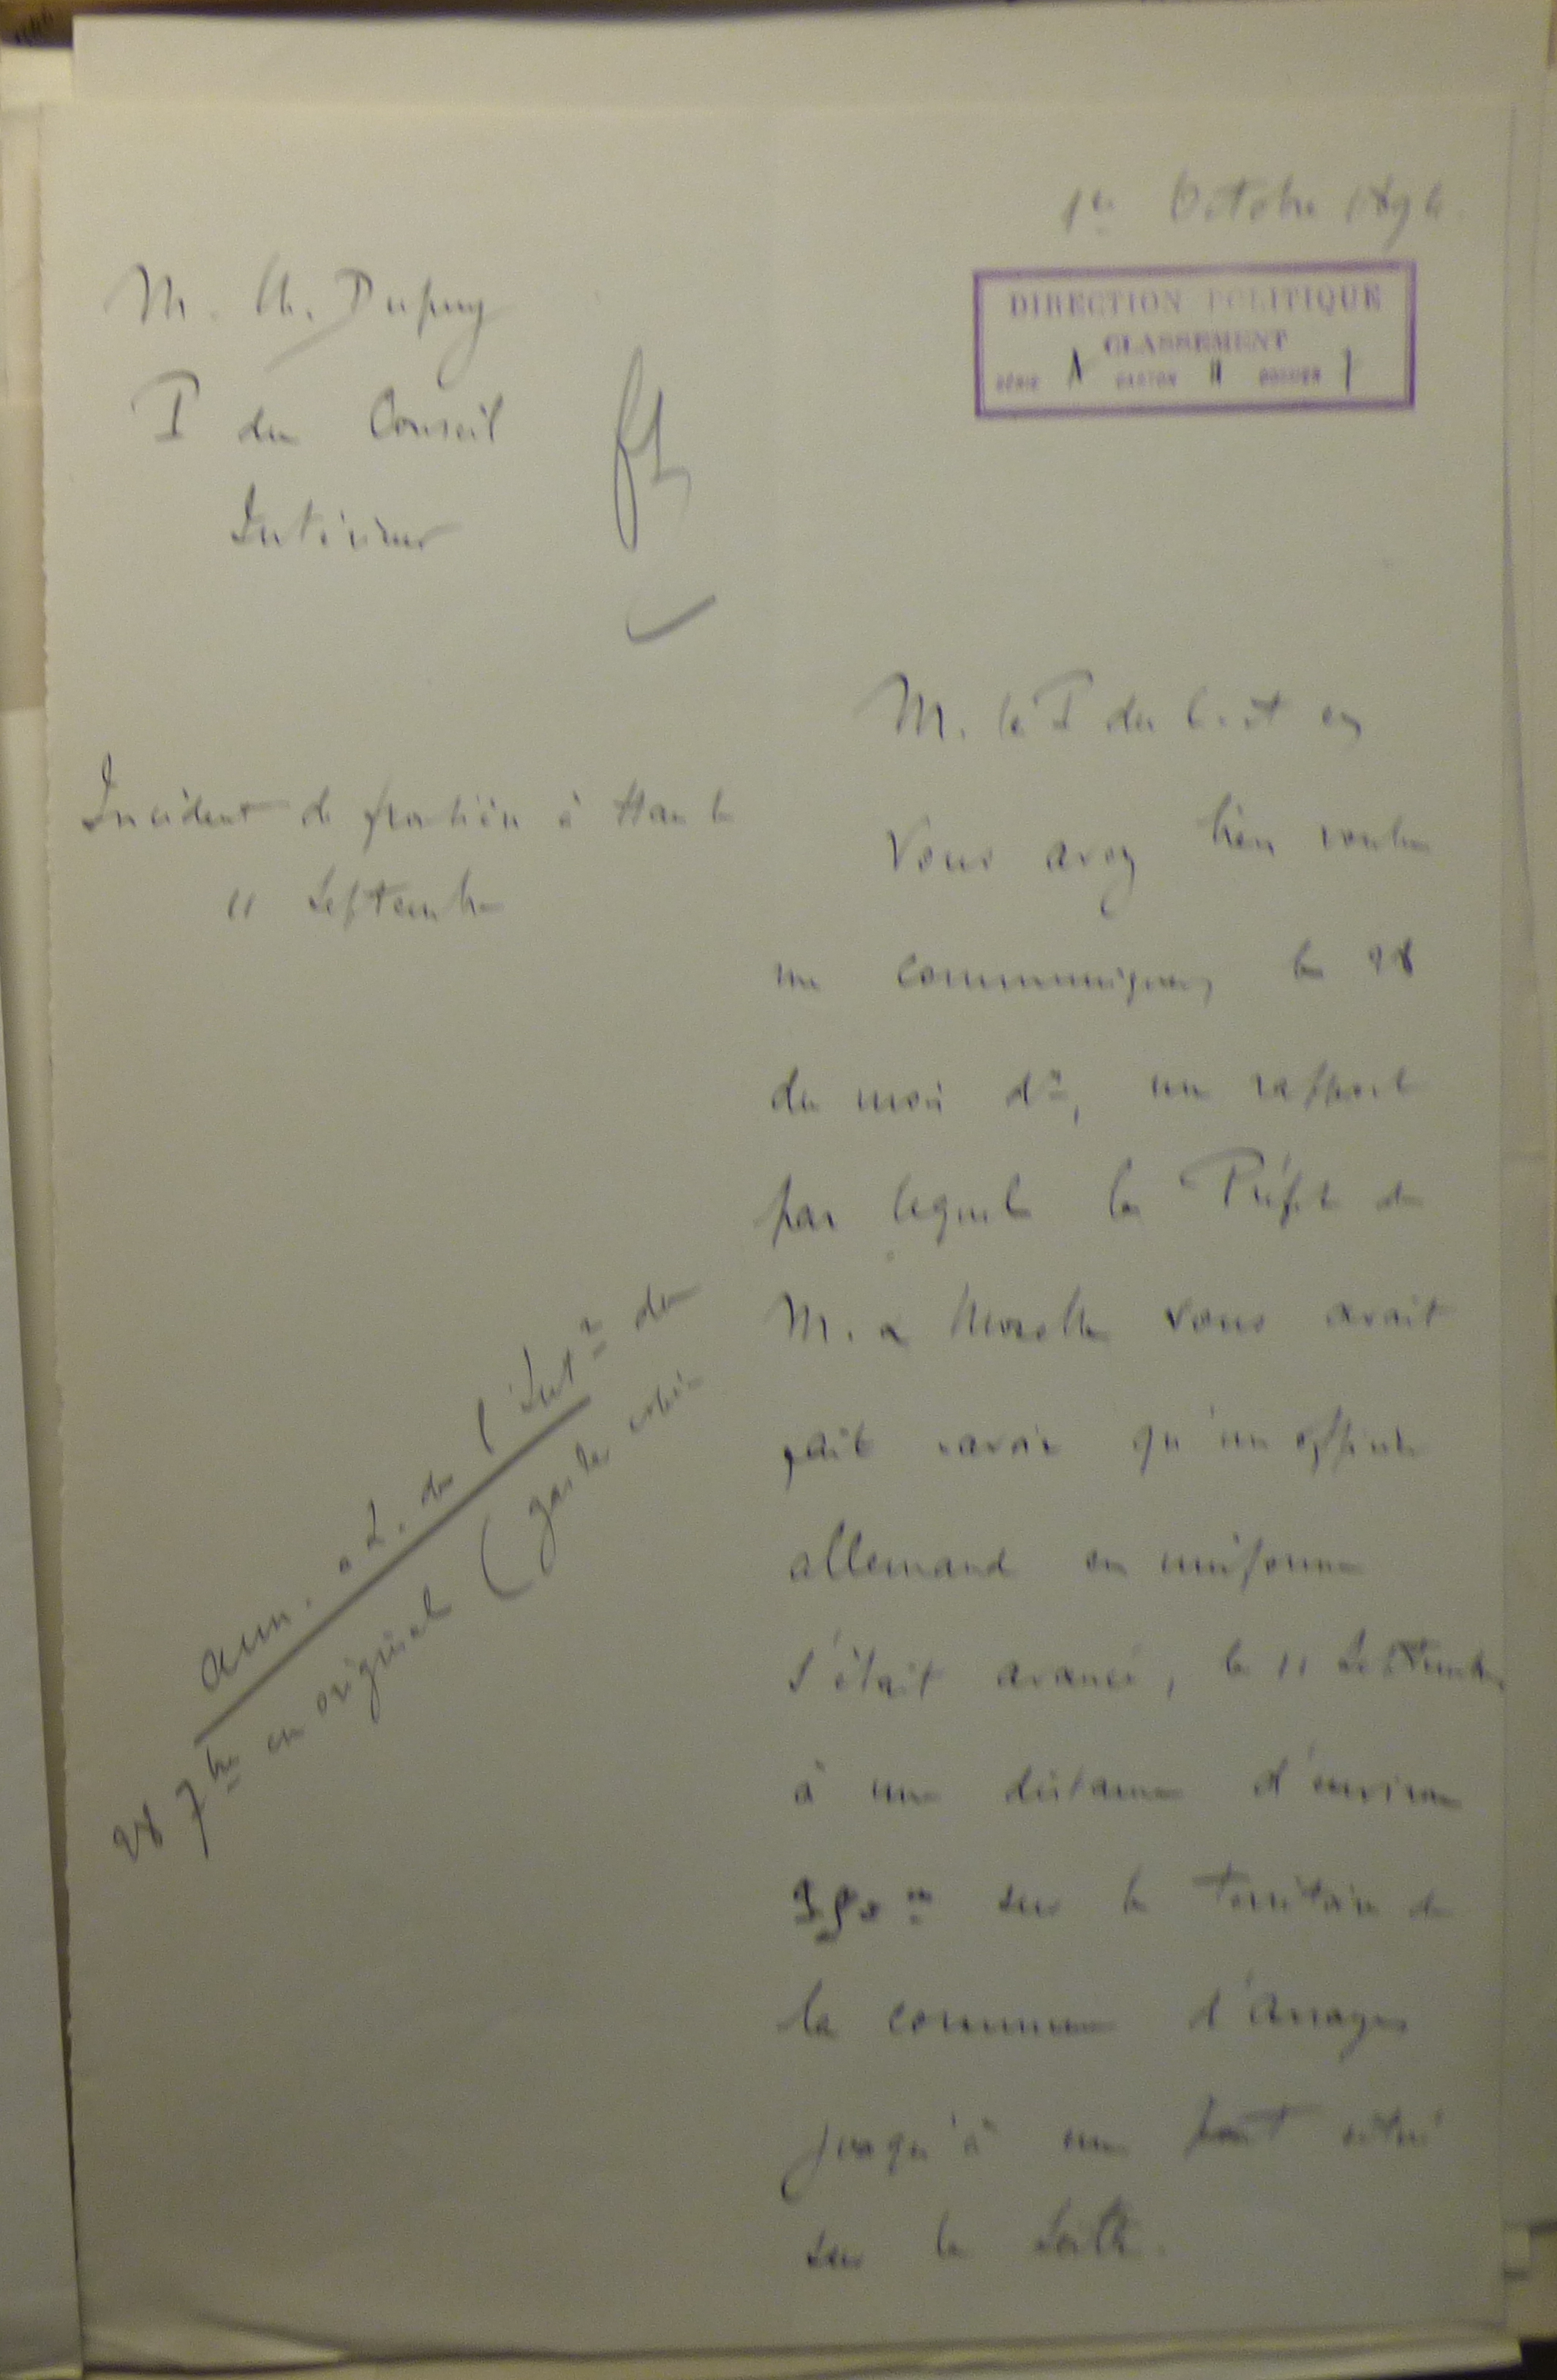 1er Octobre 1894.
DIRECTION POLITIQUE
CLASSEMENT
SÉRIE A CARTON 11 DOSSIER 7
M. Ch. Dupuy
P du Conseil
Intérieur
Incident de frontière à Han le
11 Septembre
M. le P du C. et
Vous avez bien voulu
me communiquer, le 28
du mois dr, un rapport
par lequel le Préfet de
M. & Moselle vous avait
fait savoir qu'un officier
allemand en uniforme
s'était avancé, le 11 Septembre
à une distance d'environ
350 m sur le territoire de
la commune d'Arraye
jusqu'à un pont situé
sur la Seille.
ann. à L. de l'Intr du
28 7bre en original (garder